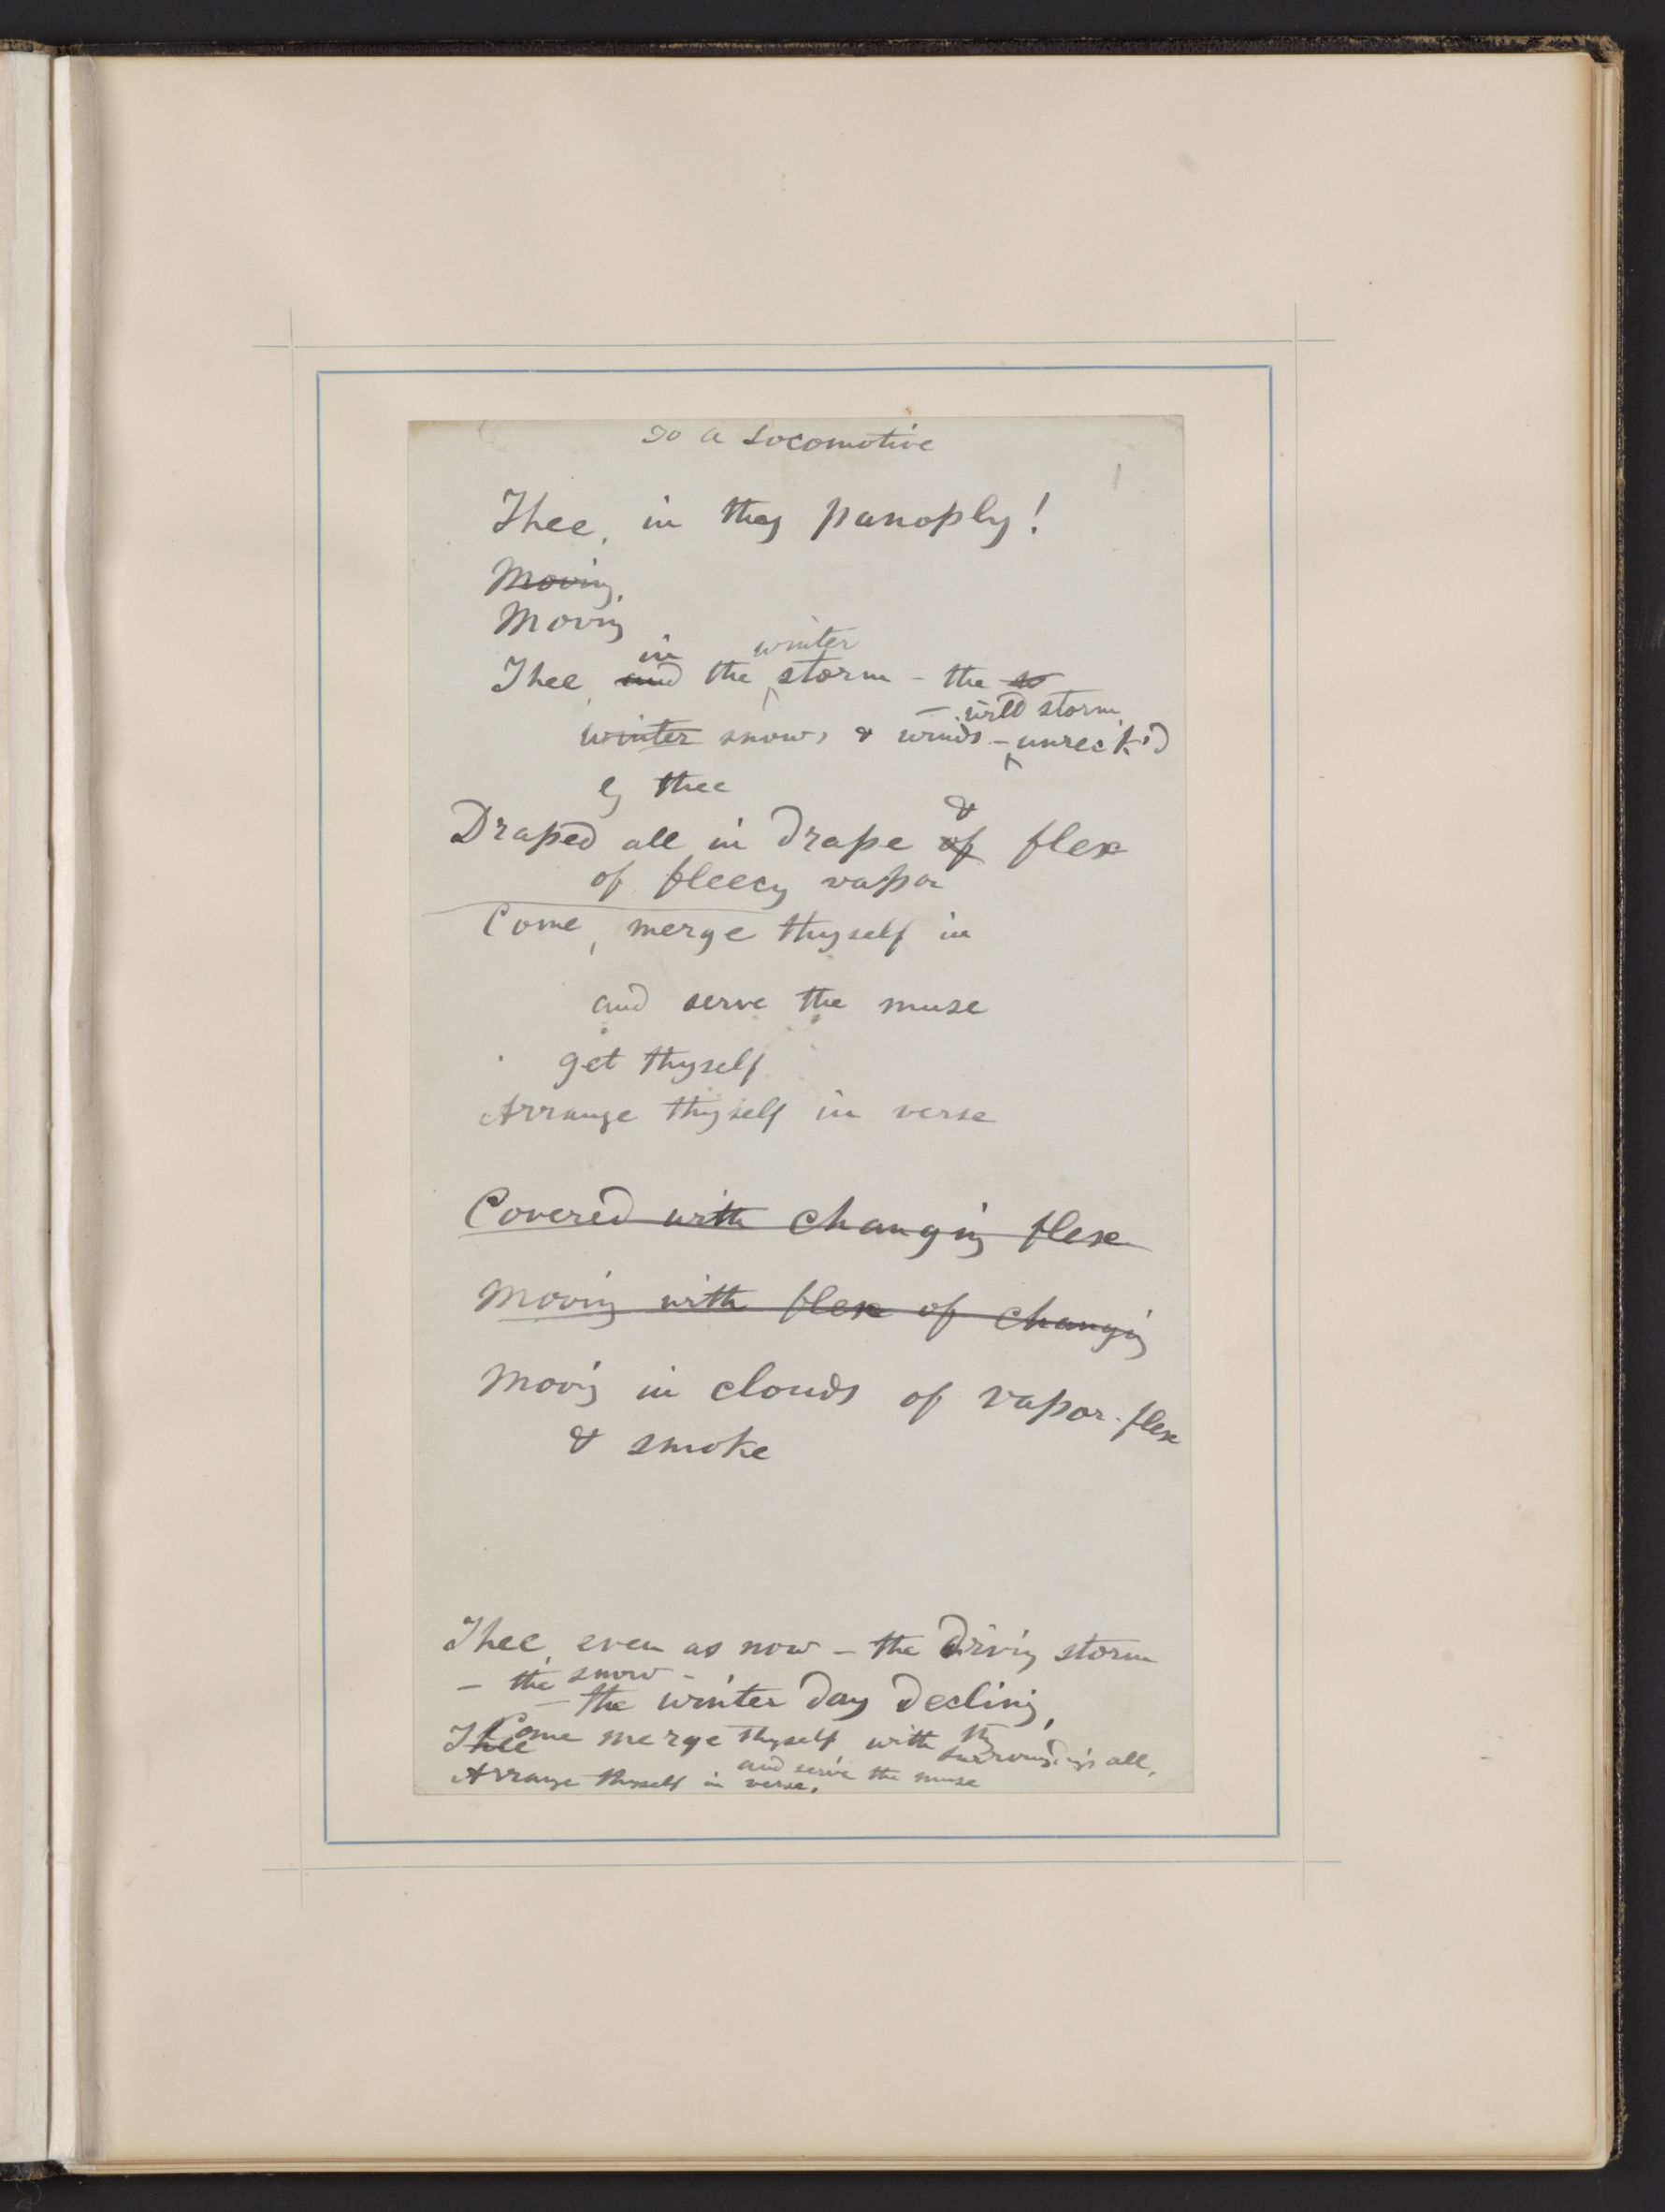 To a Locomotive
1
Thee, in thy panoply!
Moving,
Moving
in winter
Thee, and the storm – the so
– wild storm
winter snows & winds – unreck'd
by thee
&
Draped all in drape of flex
of fleecy vapor
Come, merge thyself in
and serve the muse
get thyself
Arrange thyself in verse
Covered with changing flex
Moving with flex of changing
Moving in clouds of vapor-flex
& smoke
Thee, even as now – the driving storm
– the snow –
– the winter day declining,
Thee Come merge thyself with thy surroundings all,
and serve the muse
Arrange thyself in verse,